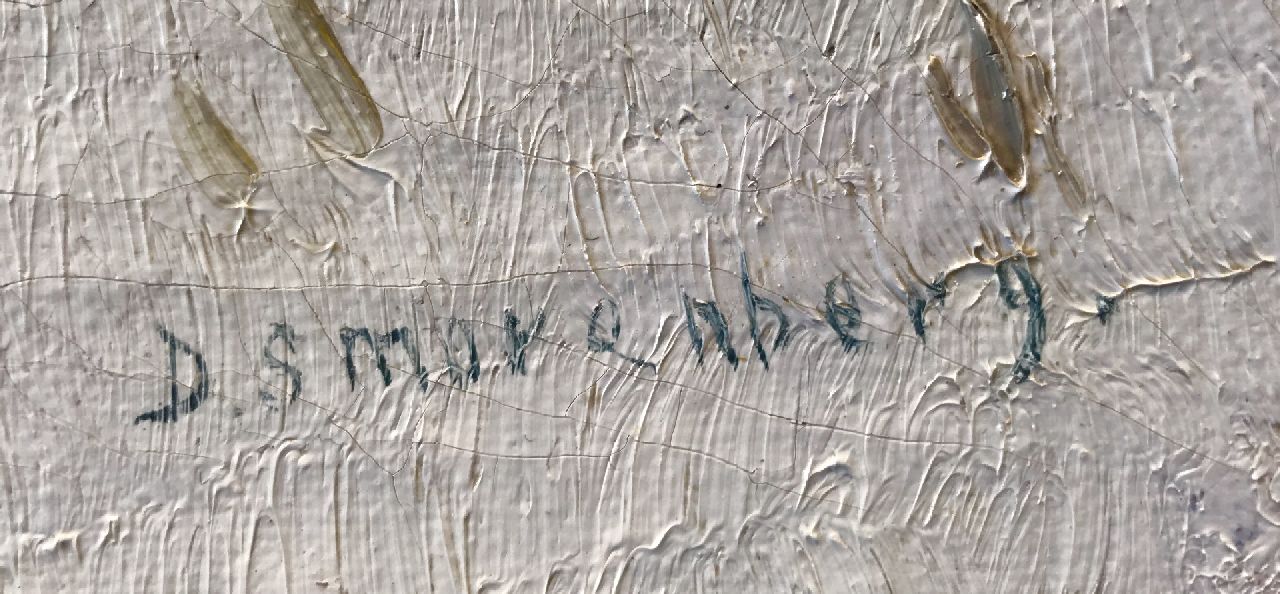 D. Smorenberg.